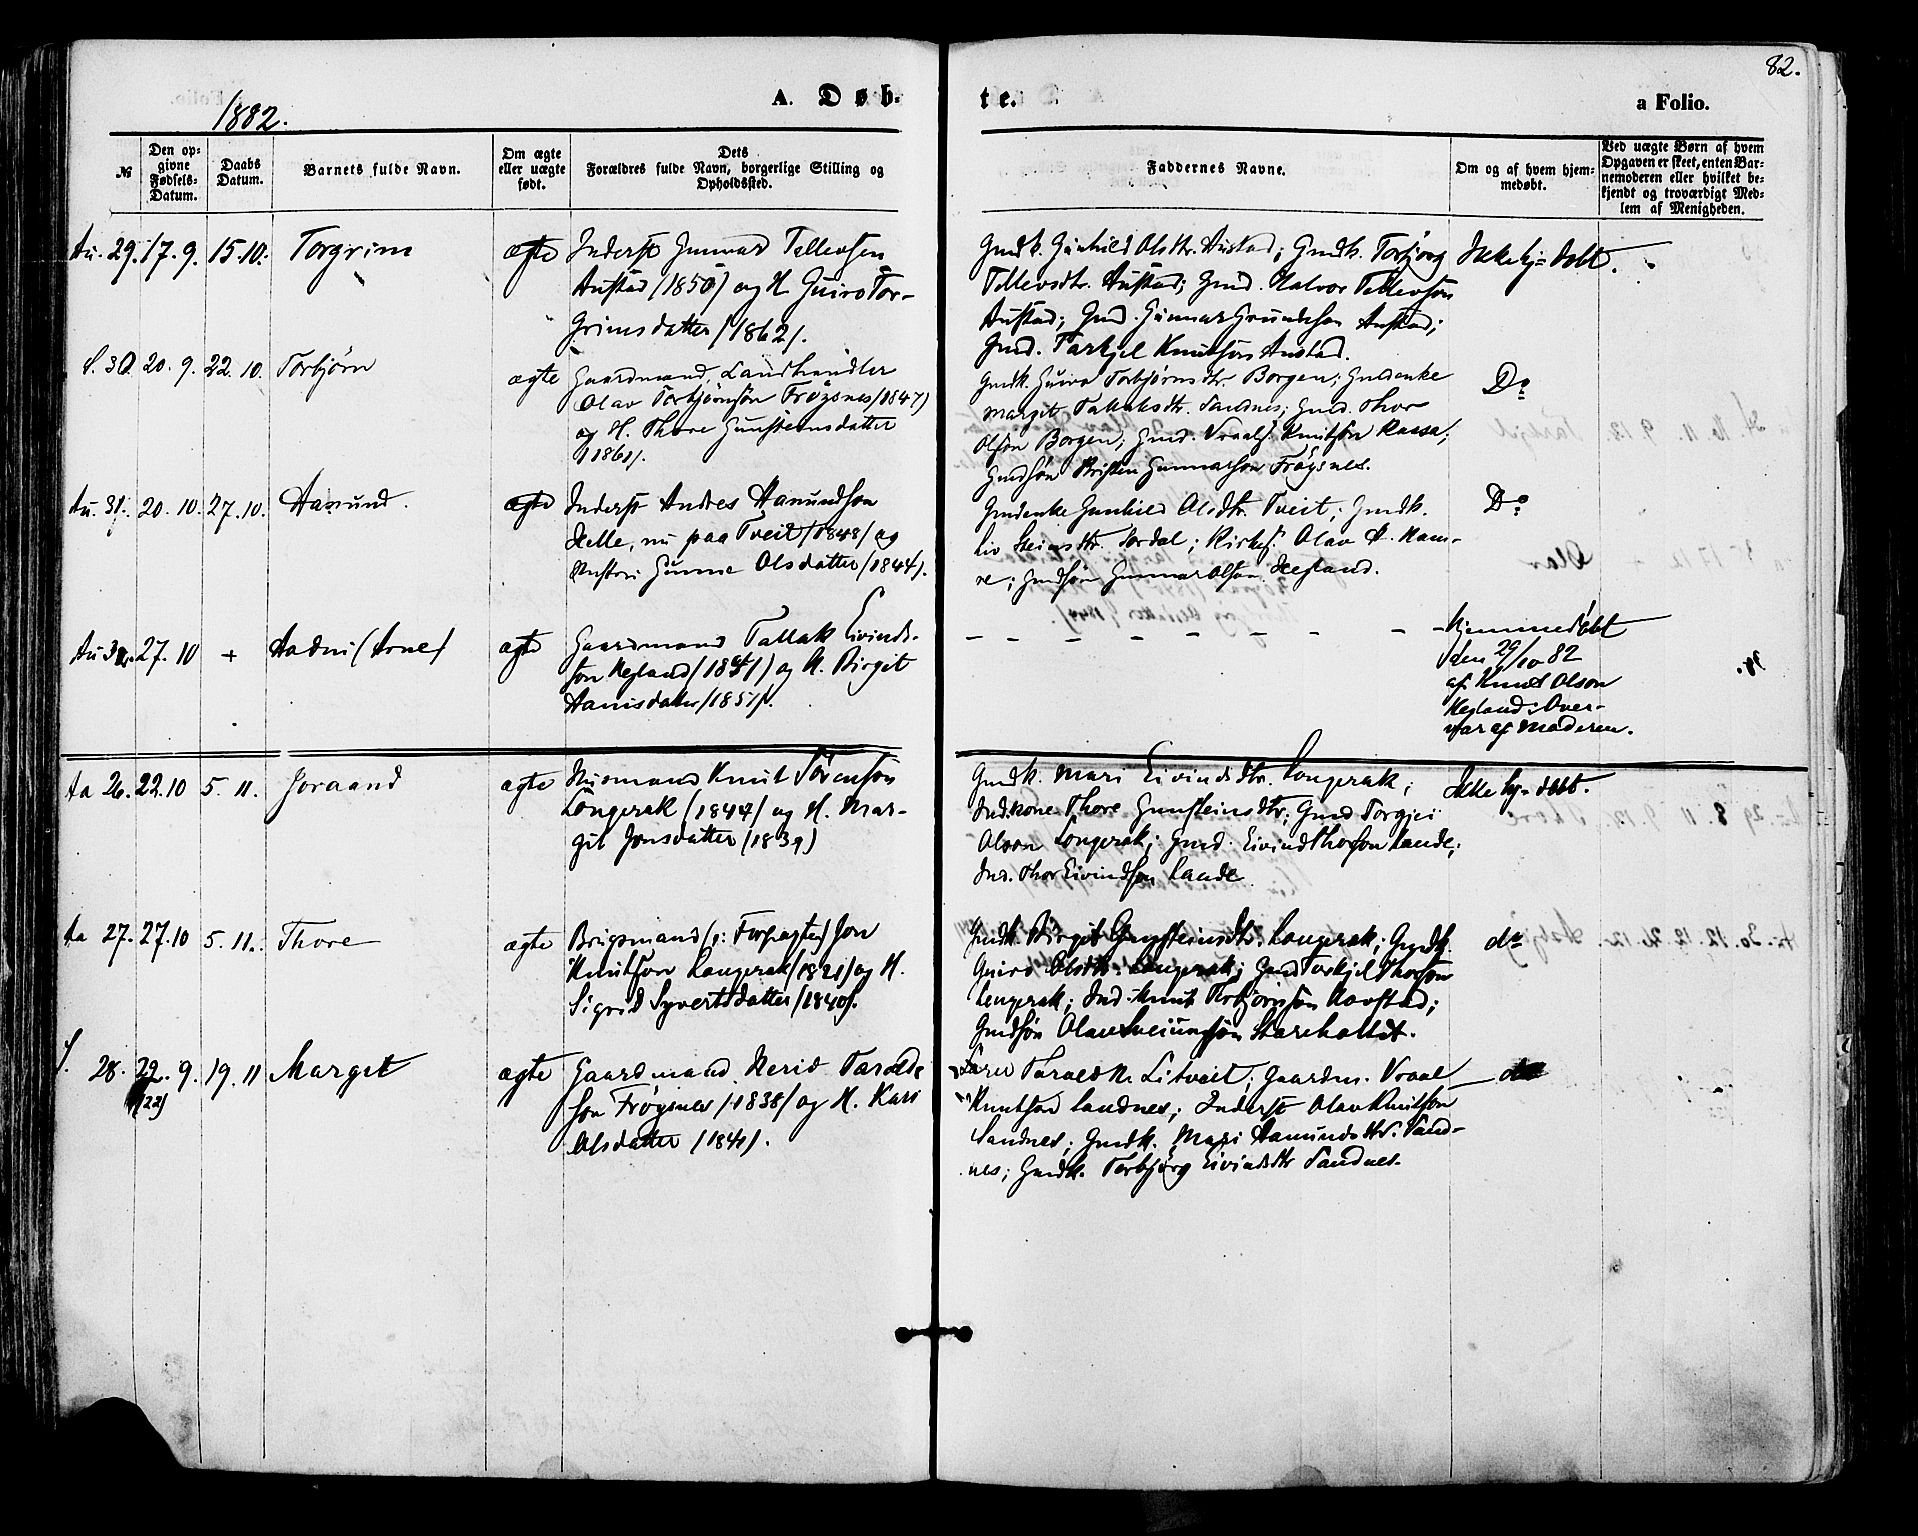 82.
1882.
A. Døb-
te.
a Folio.
№
Den op-
givne
Fødsels-
Datum.
Daabs
Datum.
Barnets fulde Navn.
Om ægte
eller uægte
født.
Dets
Forældres fulde Navn, borgerlige Stilling og
Opholdssted.
Faddernes Navne.
Om og af hvem hjem-
medøbt.
Ved uægte Børn af hvem
Opgaven er skeet, enten Bar-
nemoderen eller hvilket be-
kjendt og troværdigt Med-
lem af Menigheden.
Au. 29. 17. 9. 15. 10. Torgrim ægte Inderst Gunnar Tellevsen
Austad (1850) og H. Guro Tor-
grimsdatter (1862).
Gmdk. Gunhild Olsdtr. Austad; Gmdk. Torbjørg
Tellevsdtr. Austad; Gmd. Halvor Tellevsøn
Austad; Gmd. Gunnar Austad;
Gmd. Tarkjel Knutsøn Austad.
Ikke hj=døbt.
30. 20. 9. 22. 10. Torbjörn ægte Gaardmand, Landhandler
Olav Torbjørnsøn Frøysnes (1847)
og H. Thore Gunsteinsdatter
(1861).
Gmdk. Guro Torbjørnsdtr. Borgen; Gmdenke
Margit Tallaksdtr. Sandnes; Gmd. Thor
Olsøn Borgen; Gmd. Knutsøn Rassa;
Gmdsøn Kristen Gunnarson Frøysnes.
Do
Au. 31. 20. 10. 27. 10. Aamund. ægte Inderst Andres Aamundson
Helle, nu paa Tveit (1848) og
Hustru Gunne Olsdatter (1844).
Gmdenke Gunhild Olsdtr. Tveit; Gmdk.
Liv Steinsdtr. Sordal; Kirkes. Olav A. Ham-
re; Gmdsøn Gunnar Olson Hegland.
Do
Au 27. 10 + Aadni (Arne) ægte Gaardmand Tallak Eivinds-
søn Hegland og H. Birgit
Hanisdatter (1851).
– – – – – – – – –
Hjemmedøbt
den 29/10 82
af Knut Olson
Hegland. Over-
vær af Moderen.
Aa 26. 22. 10 5. 11. Joraand ægte Husmand Knut Sørensøn
Longerak (1844) og H. Mar-
git Jonsdatter (1839)
Gmdk. Mari Eivindsdtr. Longerak;
Ind.kone Thore Gunsteinsdtr; Gmd Torgjei
Olson Longerak; Gmd. Eivind Thorson Lande;
Ind. Thor Eivindson Lande
Ikke hj=døbt.
Aa 27. 27. 10 5. 11. Thore ægte Brugsmand (: Forpagter) Jon
Knutson Longerak (1821) og H.
Sigrid Syvertsdatter (1840).
Gmdk. Birgit Gunsteinsdtr. Longerak; Gmdk.
Guro Olsdtr. Longerak; Gmd Torkjel Thorson
Longerak; Ind. Knut Torbjørnsøn Rovstad;
Gmdsøn Olav Storehattdt.
do
28. 22. 9. 19. 11 Marget ægte Gaardmand Herid Taralds-
søn Frøysnes (1838) og H. Kari
Olsdatter (1841).
(22)
Lærer Tarald N. Litveit; Gaardm. Vraal
Knutson Sandnes; Inderst Olav Knutson
Sandnes; Gmdk. Mari Aamundsdtr. Sand-
nes; Gmdk. Torbjørg Eivindsdtr Sandnes.
do